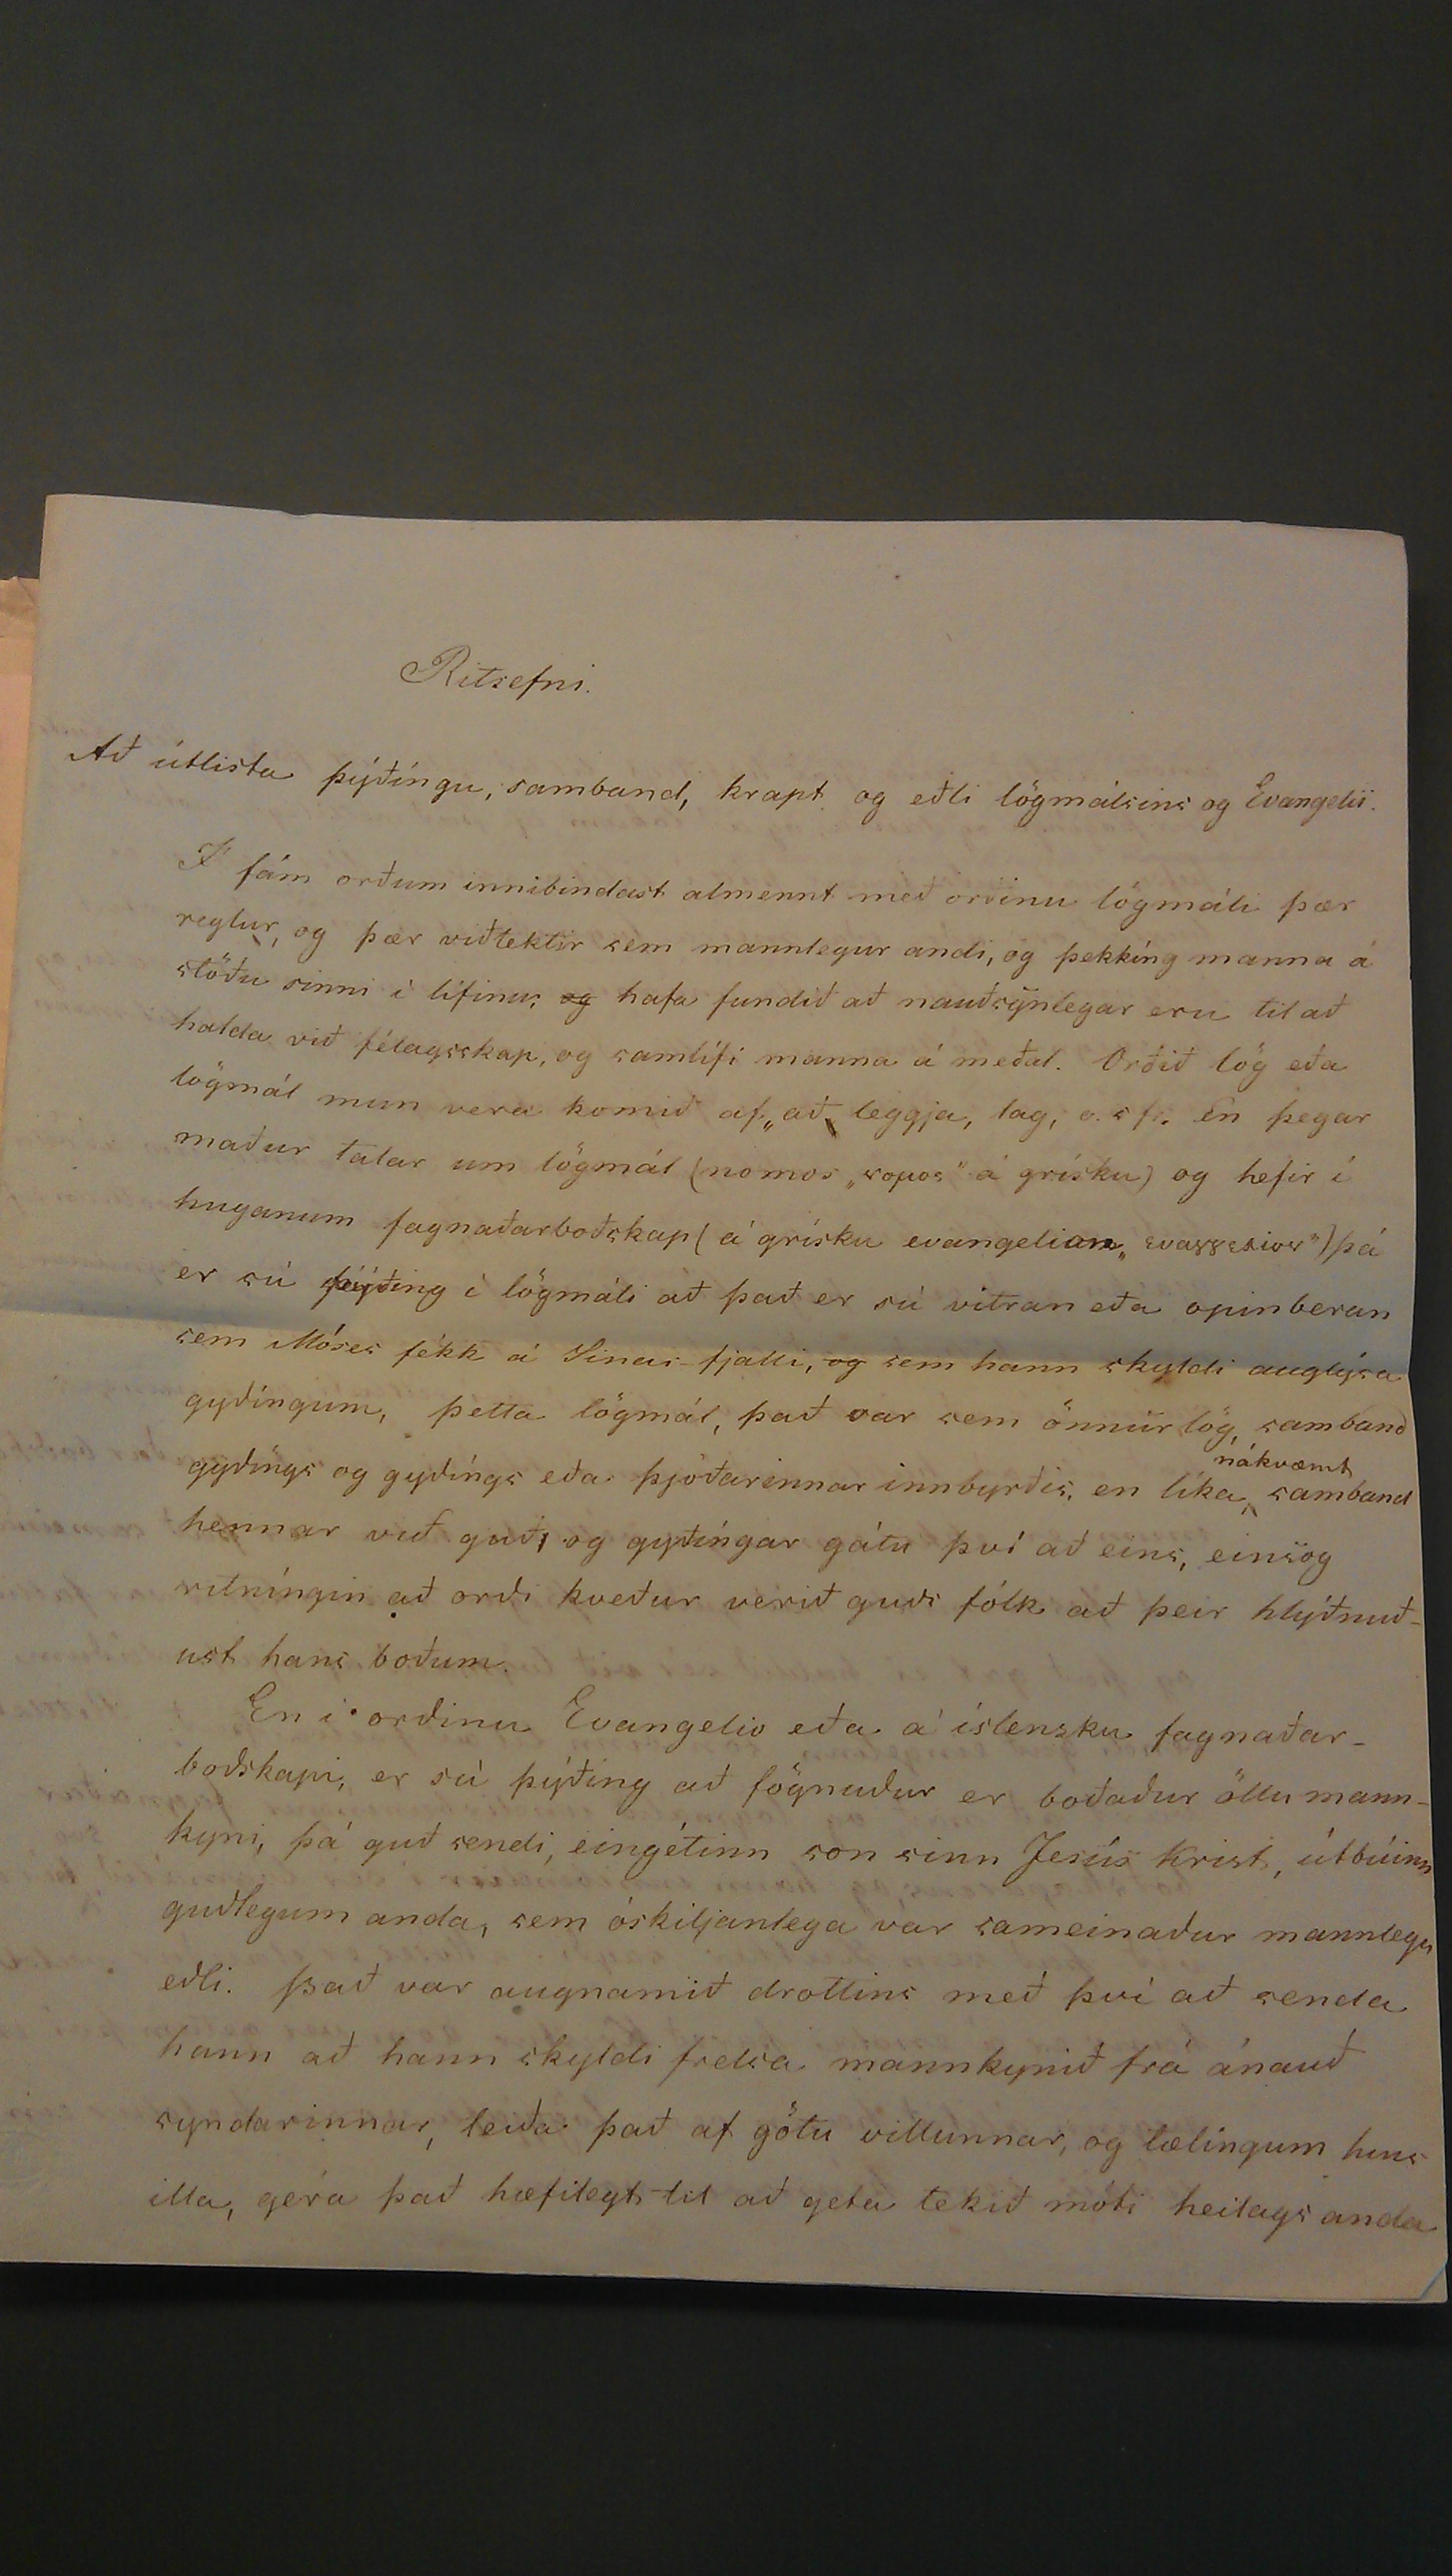 Ritsefni.
Að útlista þýðíngu, samband, krapt og eðli lögmálsins og Evangelii.
Í fám orðum innibindast almennt með orðinu lögmáli þær
reglur, og þær viðtektir sem mannlegur andi, og þekkíng manna á
stöðu sinni í lífinu, og hafa fundið að nauðsýnlegar eru til að
halda við félagsskap, og samlífi manna á meðal. Orðið lög eða
lögmál mun vera komið af „að leggja, lag, o. s fr. En þegar
maður talar um lögmál (nomos „νομος" á grísku) og hefir í
huganum fagnaðarboðskap (á grísku evangelion „ευαγγελιον") þá
er sú þýðing í lögmáli að það er sú vitran eða opinberan
sem Móses fékk á Sinai-fjalli, og sem hann skyldi auglýsa
gyðíngum, þetta lögmál, það var sem önnur lög, samband
gyðíngs og gyðíngs eða þjóðarinnar innbyrðis, en líka nákvæmt samband
hennar við guð, og gyðíngar gátu því að eins, einsog
ritníngin að orði kveður verið guðs fólk að þeir hlýðnuð-
ust hans boðum.
En í orðinu Evangelio eða á íslenzku fagnaðar-
boðskapi, er sú þýðing að fögnuður er boðaður öllu mann-
kyni, þá guð sendi, eingétinn son sinn Jesús Krist, útbúinn
guðlegum anda, sem óskiljanlega var sameinaður mannlegu
eðli. Það var augnamið drottins með því að senda
hann að hann skyldi frelsa mannkynið frá ánauð
syndarinnar, leiða það af götu villunnar, og tælíngum hins
illa, géra það hæfilegt til að geta tekið móti heilags anda